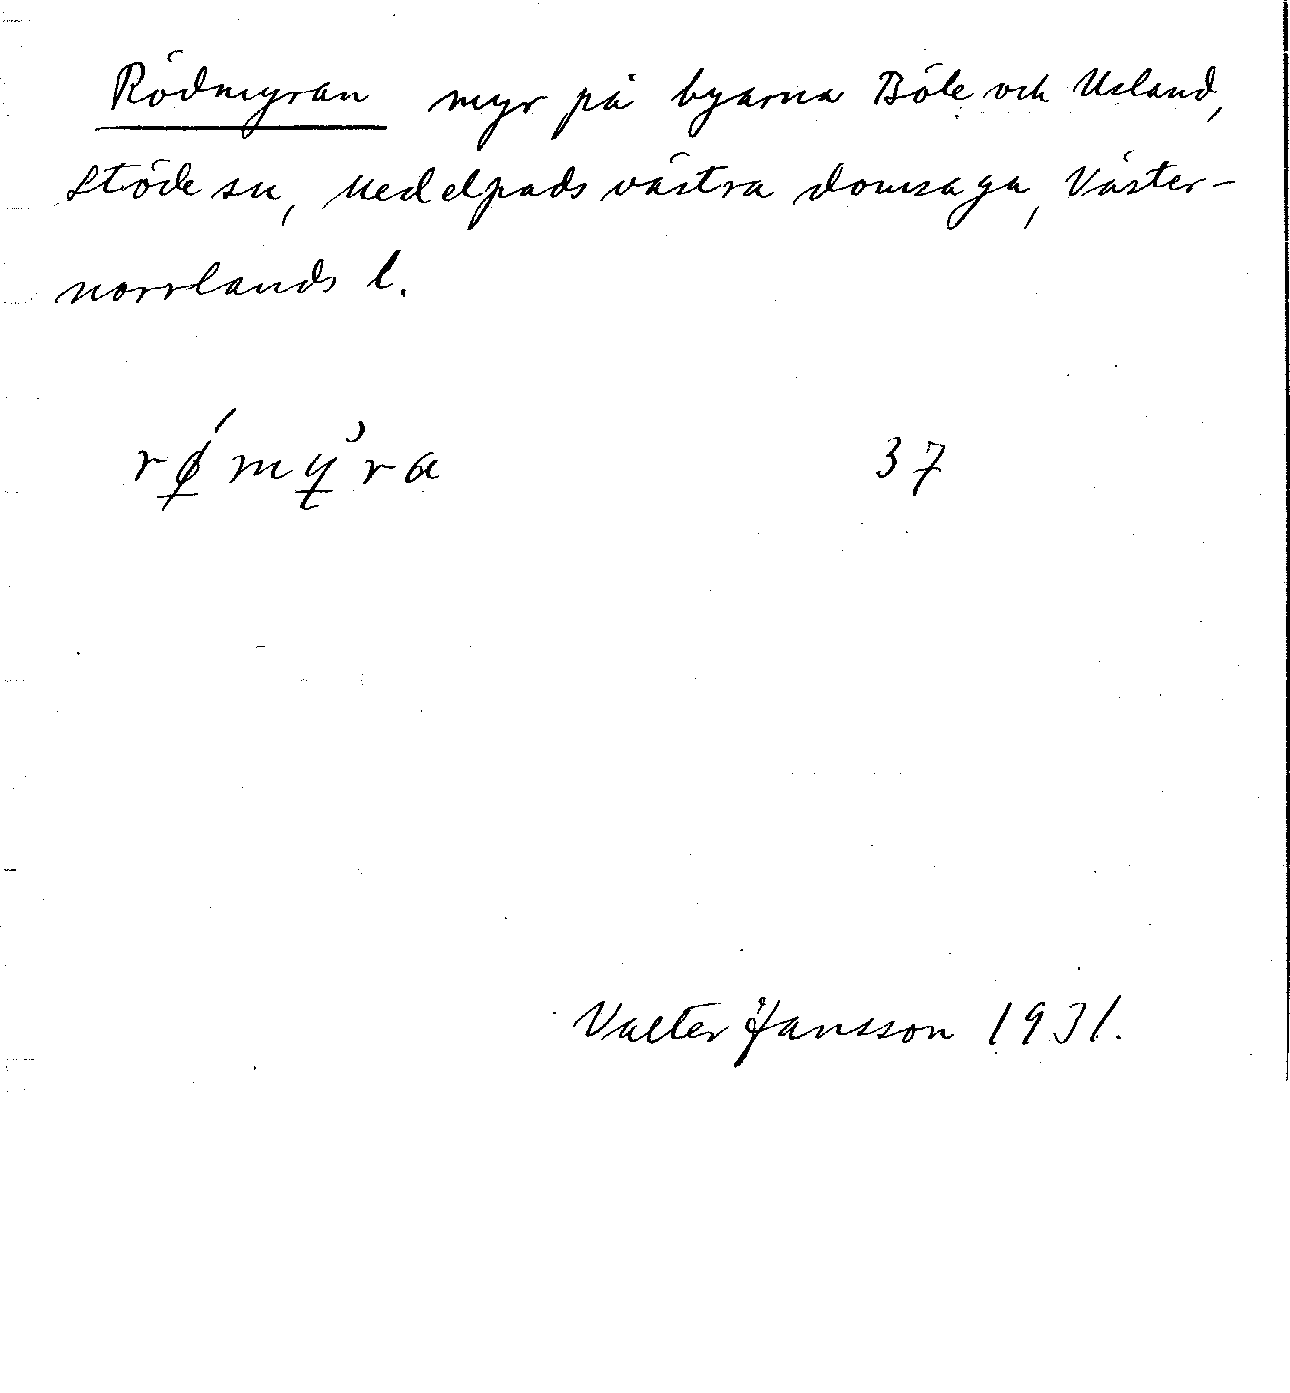 Rödmyran myr på byarna Böle och Usland,
Stöde sn, Medelpads västra domsaga, Väster-
norrlands l.
rǿ̱my̱̓ra 37
Valter Jansson 1931.